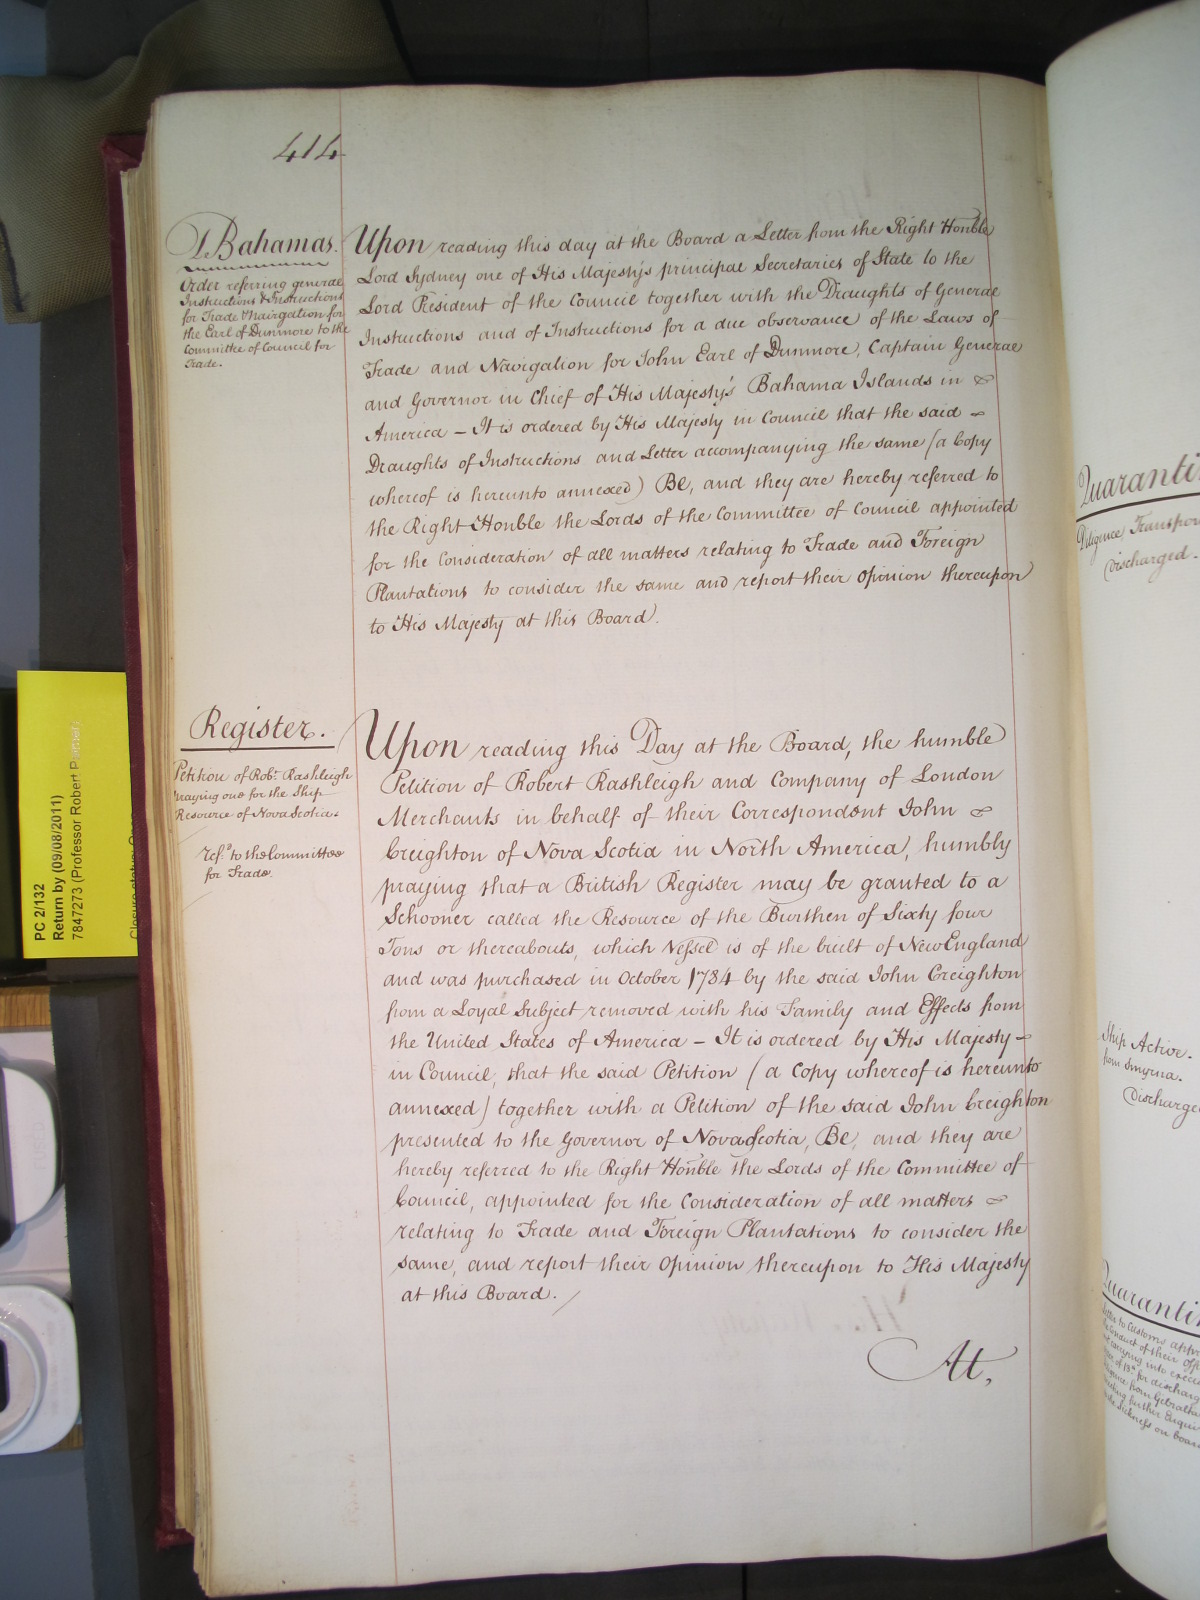 414
Bahamas.
Order referring general
Instructions & Instructions
for Trade & Navigation for
the Earl of Dunmore to the
Committee of Council for
Trade.
Upon reading this day at the Board a Letter from the Right Honble
Lord Sydney one of His Majesty's principal Secretaries of State to the
Lord President of the Council together with the Draughts of General
Instructions and of Instructions for a due observance of the Laws of
Trade and Navigation for John Earl of Dunmore, Captain General
and Governor in Chief of His Majesty's Bahama Islands in
America - It is ordered by His Majesty in Council that the said
Draughts of Instructions and Letter accompanying the same (a Copy
whereof is hereunto annexed) Be, and they are hereby referred to
the Right Honble the Lords of the Committee of Council appointed
for the Consideration of all matters relating to Trade and Foreign
Plantations to consider the same and report their Opinion thereupon
to His Majesty at this Board.
Register.
Petition of Robt. Rashleigh
praying one for the Ship
Resource of Nova Scotia.
refd. to the Committee
for Trade.
Upon reading this Day at the Board, the humble
Petition of Robert Rashleigh and Company of London
Merchants in behalf of their Correspondent John
Creighton of Nova Scotia in North America, humbly
praying that a British Register may be granted to a
Schooner called the Resource of the Burthen of Sixty four
Tons or thereabouts, which Vessel is of the built of New England
and was purchased in October 1784 by the said John Creighton
from a Loyal Subject removed with his Family and Effects from
the United States of America - It is ordered by His Majesty -
in Council, that the said Petition (a Copy whereof is hereunto
annexed) together with a Petition of the said John Creighton
presented to the Governor of Nova Scotia, Be, and they are
hereby referred to the Right Honble the Lords of the Committee of
Council, appointed for the Consideration of all matters
relating to Trade and Foreign Plantations to consider the
same, and report their Opinion thereupon to His Majesty
at this Board.
At,
PC 2/132
Return by (09/08/2011)
7847273 (Professor Robert
Closure status:
Diligence
discharged.
Ship Active.
from Smyrna.